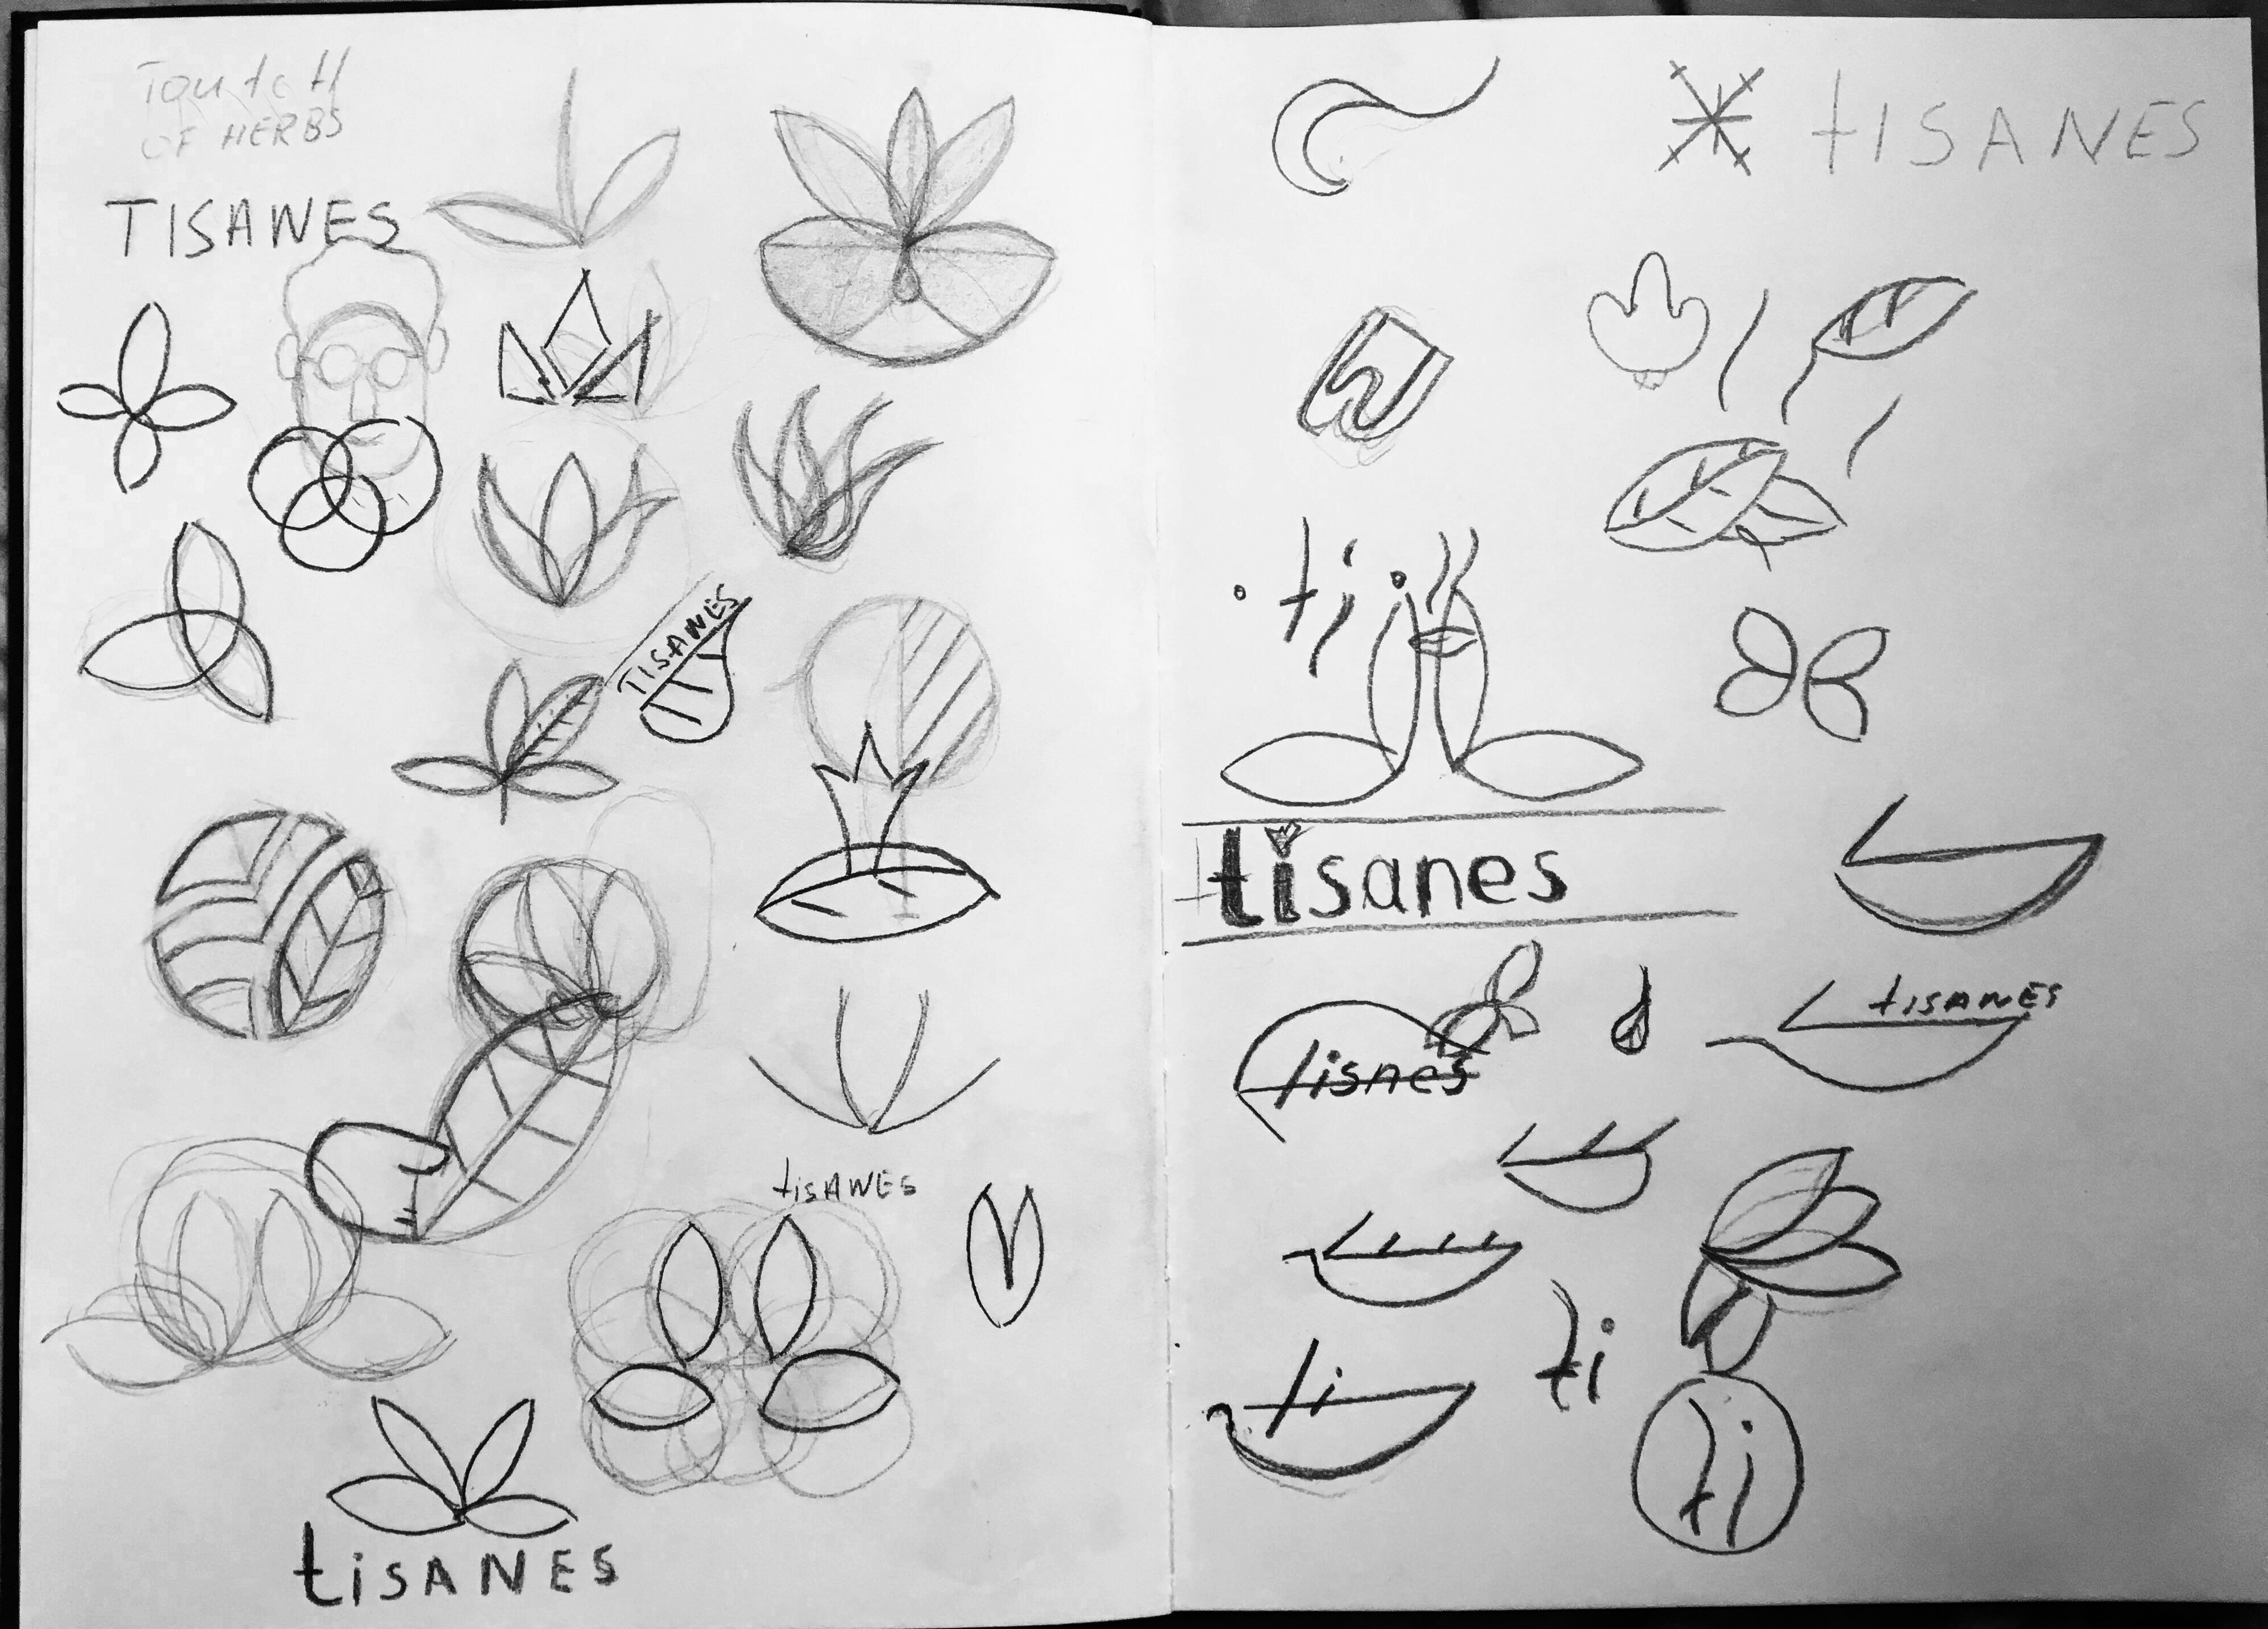 Toutch
OF HERBS
TISANES
TISANES
tisANES
tiSANES
tISANES
ti
tisanes
tisnes
tISANES
ti
ti
ti